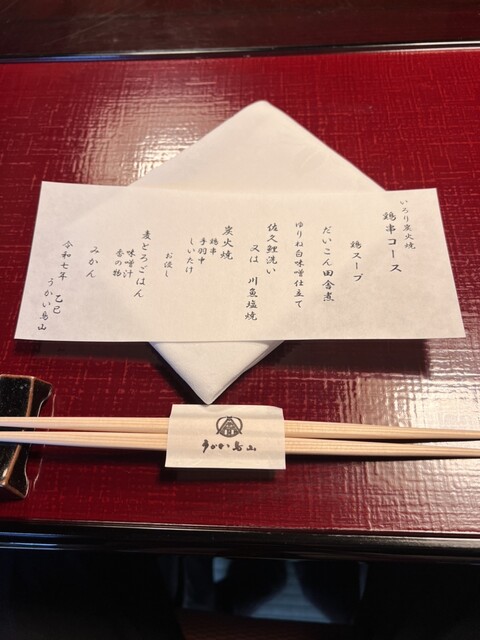 いろり炭火焼
鶏串コース
鶏スープ
だいこん田舎煮
ゆりね白味噌仕立て
佐久鯉洗い
又は 川魚塩焼
炭火焼
鶏串
手羽中
しいたけ
お浸し
麦とろごはん
味噌汁
香の物
みかん
令和七年 乙巳
うかい鳥山
うかい鳥山